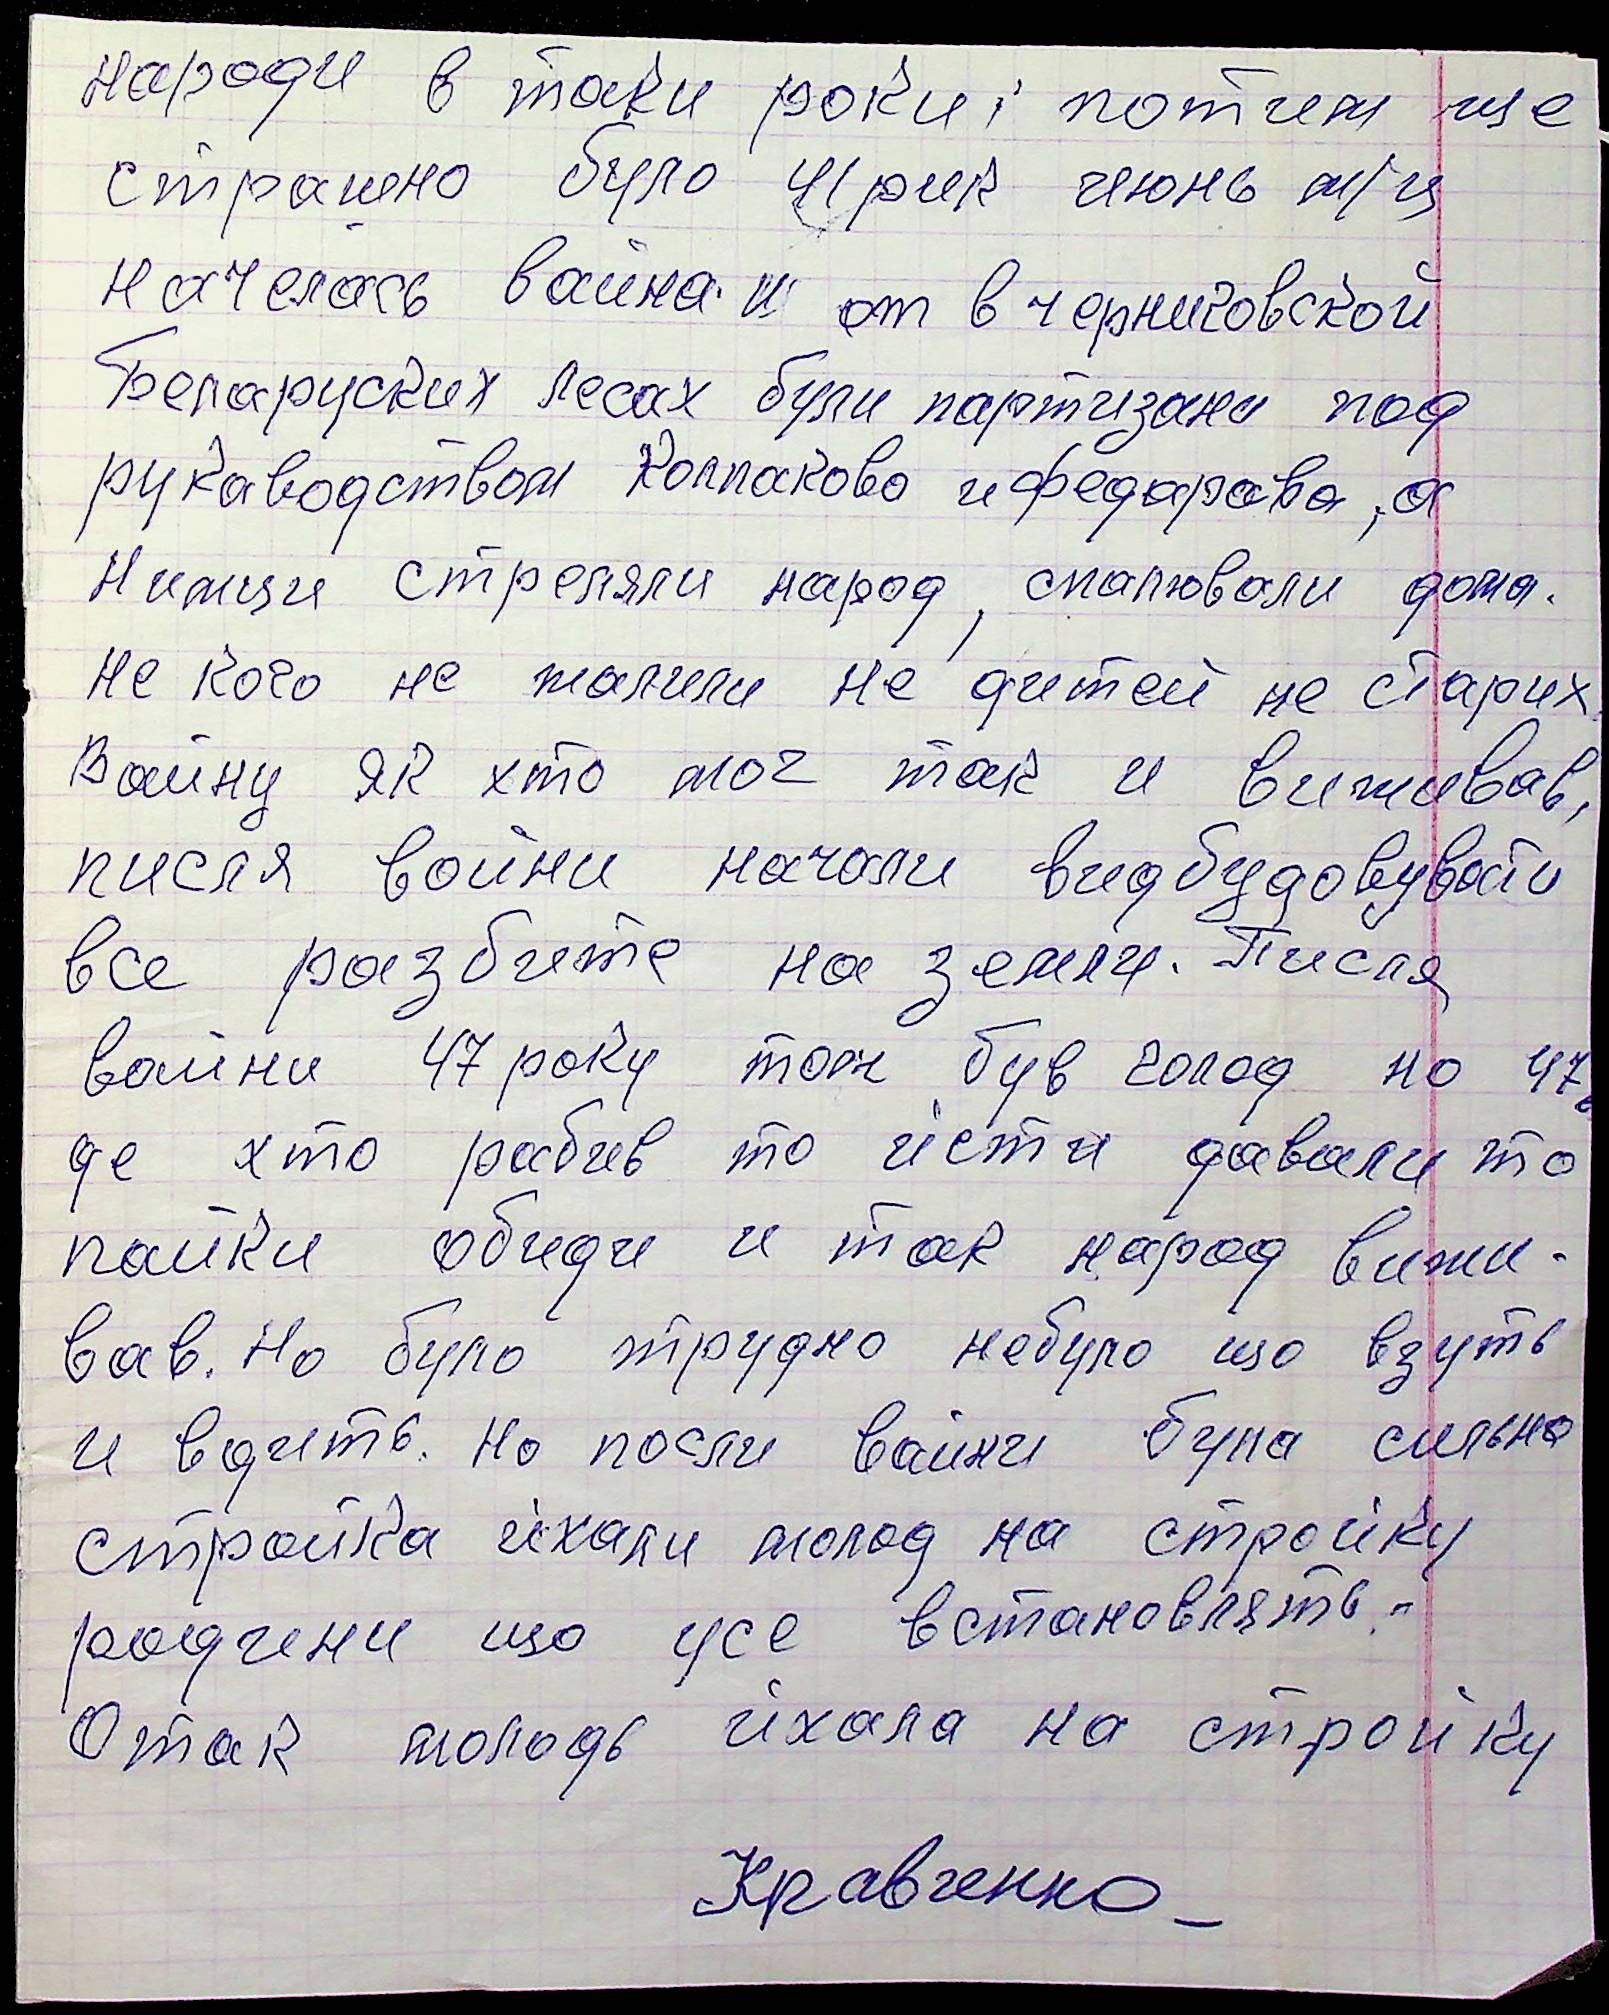 народи в таки роки, потим ще
страшно було 41 рик июнь м/ц
начелась вайна. и от в черниговской
Беларуских лесах були партизани под
рукаводством Колпакова и федарава, а
Нимци стреляли народ, спалювали дома.
не кого не жалили не дитей не старих.
Вайну як хто мог так и виживав,
писля войни начали видбудовувати
все разбите на земли. Писля
вайни 47 року тож був голод но 47
де хто рабив то йісти давали то
пайки обиди и так народ вижи-
вав. Но було трудно небуло що взуть
и вдить. Но посли вайни була сильно
стройка йіхали молод на стройку
родчени що усе встановлять.
Отак молодь йіхала на стройку
Кравченко